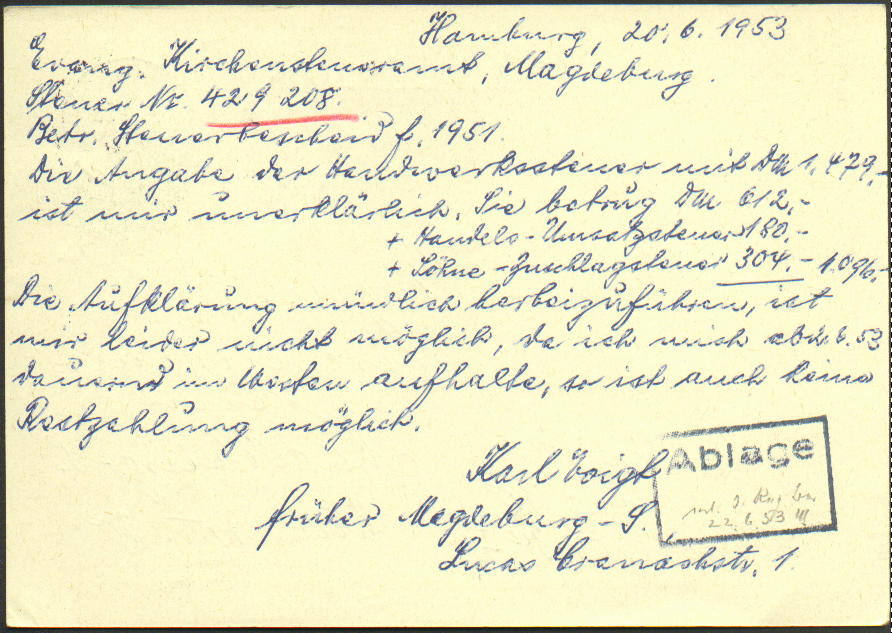 Hamburg, 20.6.1953
Evang. Kirchensteueramt, Magdeburg.
Steuer Nr. 429 208.
Betr. Steuerbescheid f. 1951.
Die Angabe der Handwerksteuer mit DM 1.479,-
ist mir unerklärlich. Sie betrug DM 612,-
+ Handels-Umsatzsteuer 180,-
+ Löhne-Zuschlagsteuer 304.- 1.096,-
Die Aufklärung mündlich herbeizuführen, ist
mir leider nicht möglich, da ich mich 6.53
dauernd im Westen aufhalte, so ist auch keine
Restzahlung möglich.
Karl Voigt
früher Magdeburg-S.
Lucas Cranachstr. 1.
Ablage
22.6.53